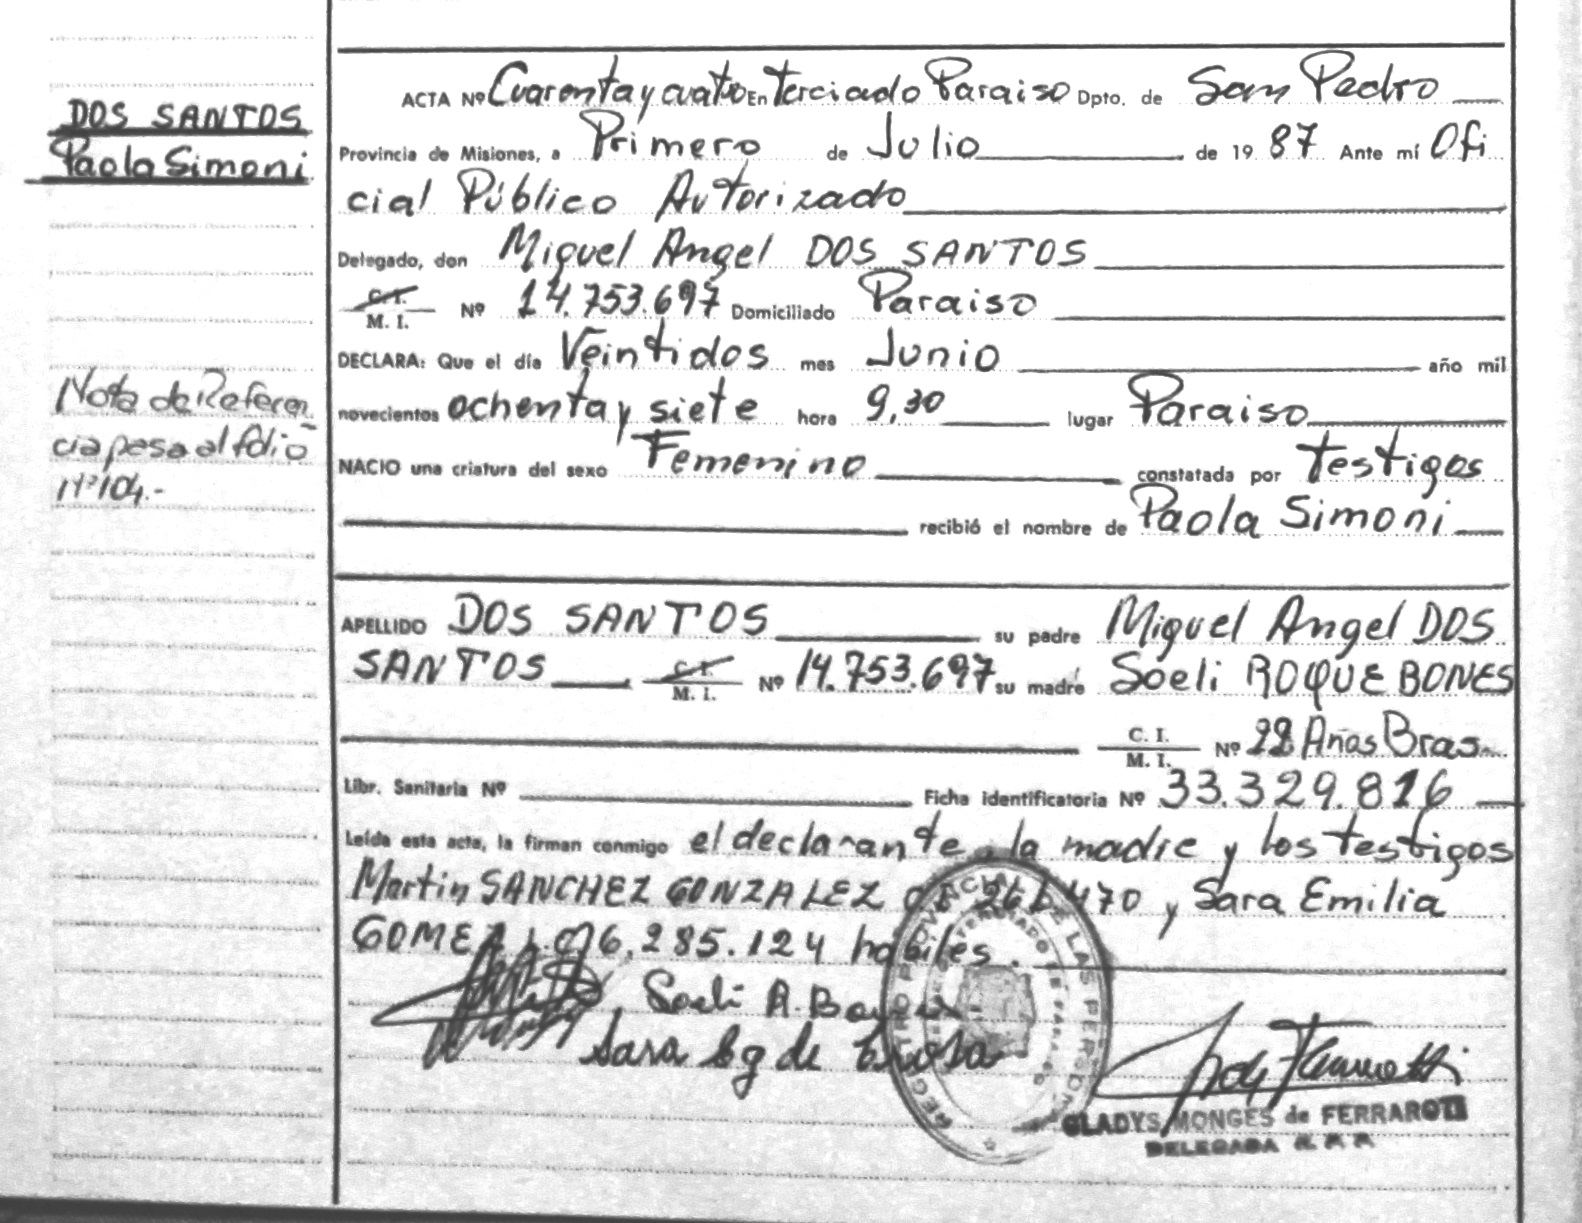 DOS SANTOS
Paola Simoni
Nota de Referen
cia pasa al folio
Nº 104.-
ACTA Nº Cuarenta y cuatro En Terciado Paraiso Dpto. de San Pedro
Provincia de Misiones, a Primero de Julio de 19 87 Ante mí Ofi
cial Público Autorizado
Delegado, don Miguel Angel DOS SANTOS
C. I.
M. I. Nº 14.753.697 Domiciliado Paraiso
DECLARA: Que el día Veintidos mes Junio año mil
novecientos ochenta y siete hora 9,30 lugar Paraiso
NACIO una criatura del sexo Femenino constatada por Testigos
recibió el nombre de Paola Simoni
APELLIDO DOS SANTOS su padre Miguel Angel DOS
SANTOS C. I. M. I. Nº 14.753.697 su madre Soeli ROQUE BONES
C. I.
M. I. Nº 22 Años Bras.
Libr. Sanitaria Nº Ficha identificatoria Nº 33.329.816
Leída esta acta, la firman conmigo el declarante, la madre y los testigos
Martin SANCHEZ GONZALEZ 470 y Sara Emilia
GOMEZ 6.285.124 habiles.
Soeli A.
Sara
REGISTRO PROVINCIAL DE LAS PERSONAS
TERCIADO
GLADYS MONGES de FERRAROTI
DELEGADA R. P. P.